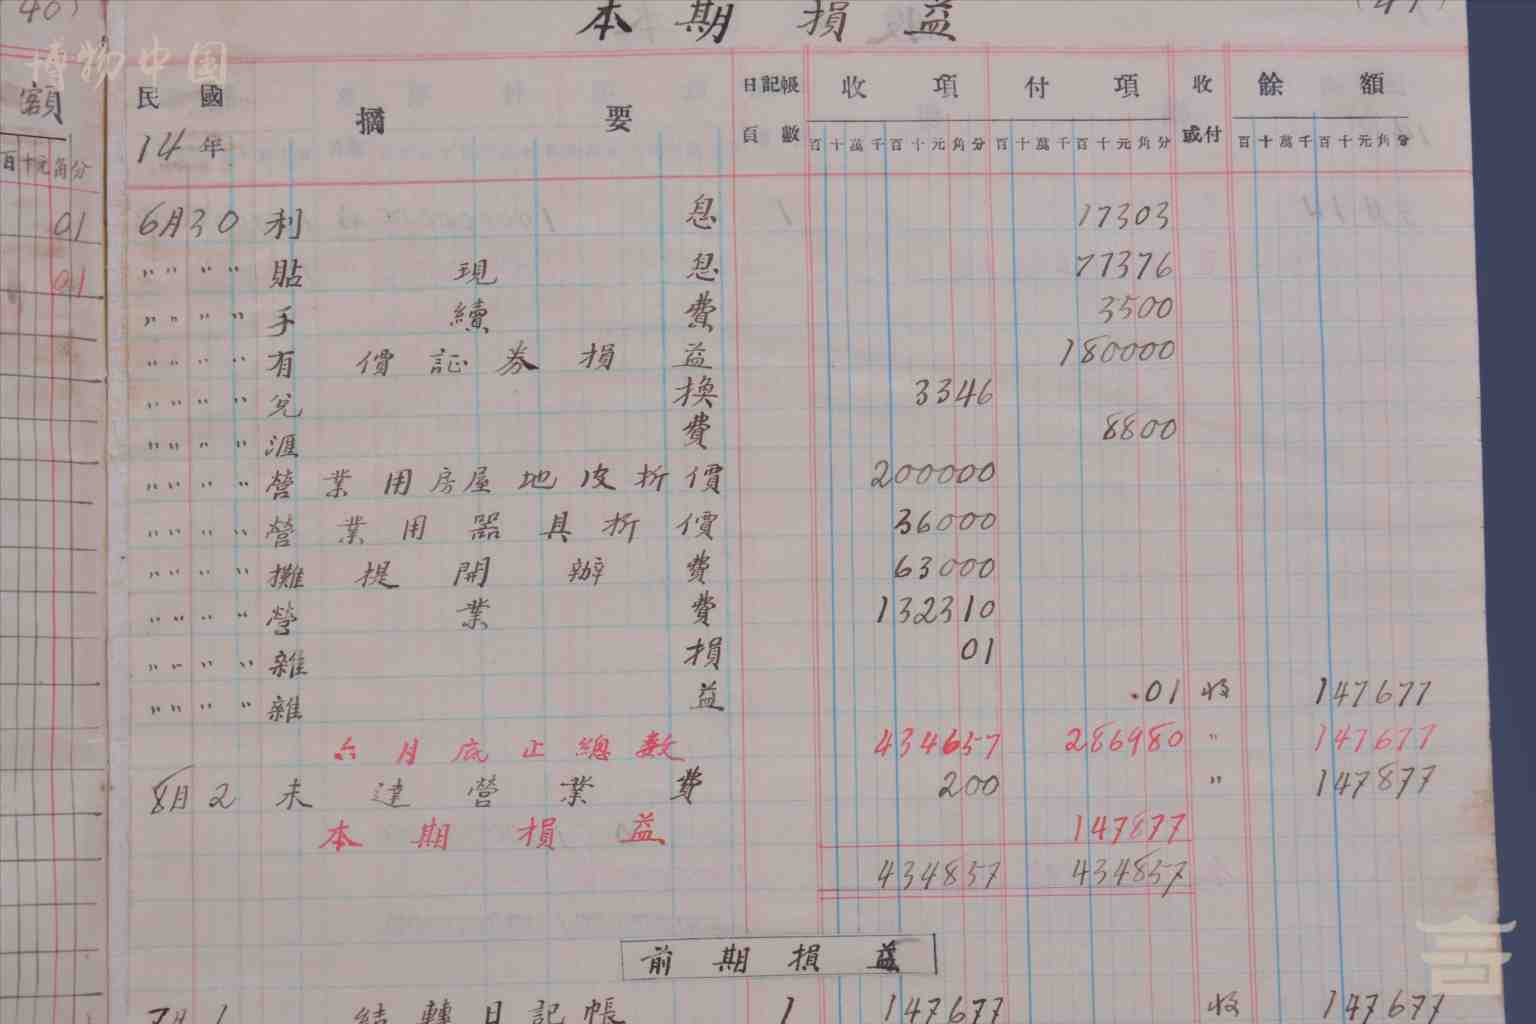 40)
本期損益
(41)
博物中国
額
百十元角分
01
01
民國
14年
摘要
日記帳
頁數
收項
付項
收
或付
餘額
百十萬千百十元角分
百十萬千百十元角分
百十萬千百十元角分
6月30 利息 17303
〃〃〃〃 貼現息 77376
〃〃〃〃 手續費 3500
〃〃〃〃 有價証券損益 180000
〃〃〃〃 兌換 3346
〃〃〃〃 滙費 8800
〃〃〃〃 營業用房屋地皮折價 200000
〃〃〃〃 營業用器具折價 36000
〃〃〃〃 攤提開辦費 63000
〃〃〃〃 營業費 132310
〃〃〃〃 雜損 01
〃〃〃〃 雜益 .01 收 147677
六月底止總数 434657 286980 〃 147677
8月2 未達營業費 200 〃 147877
本期損益 147877
434857 434857
前期損益
7月1 結轉日記帳 1 147677 收 147677